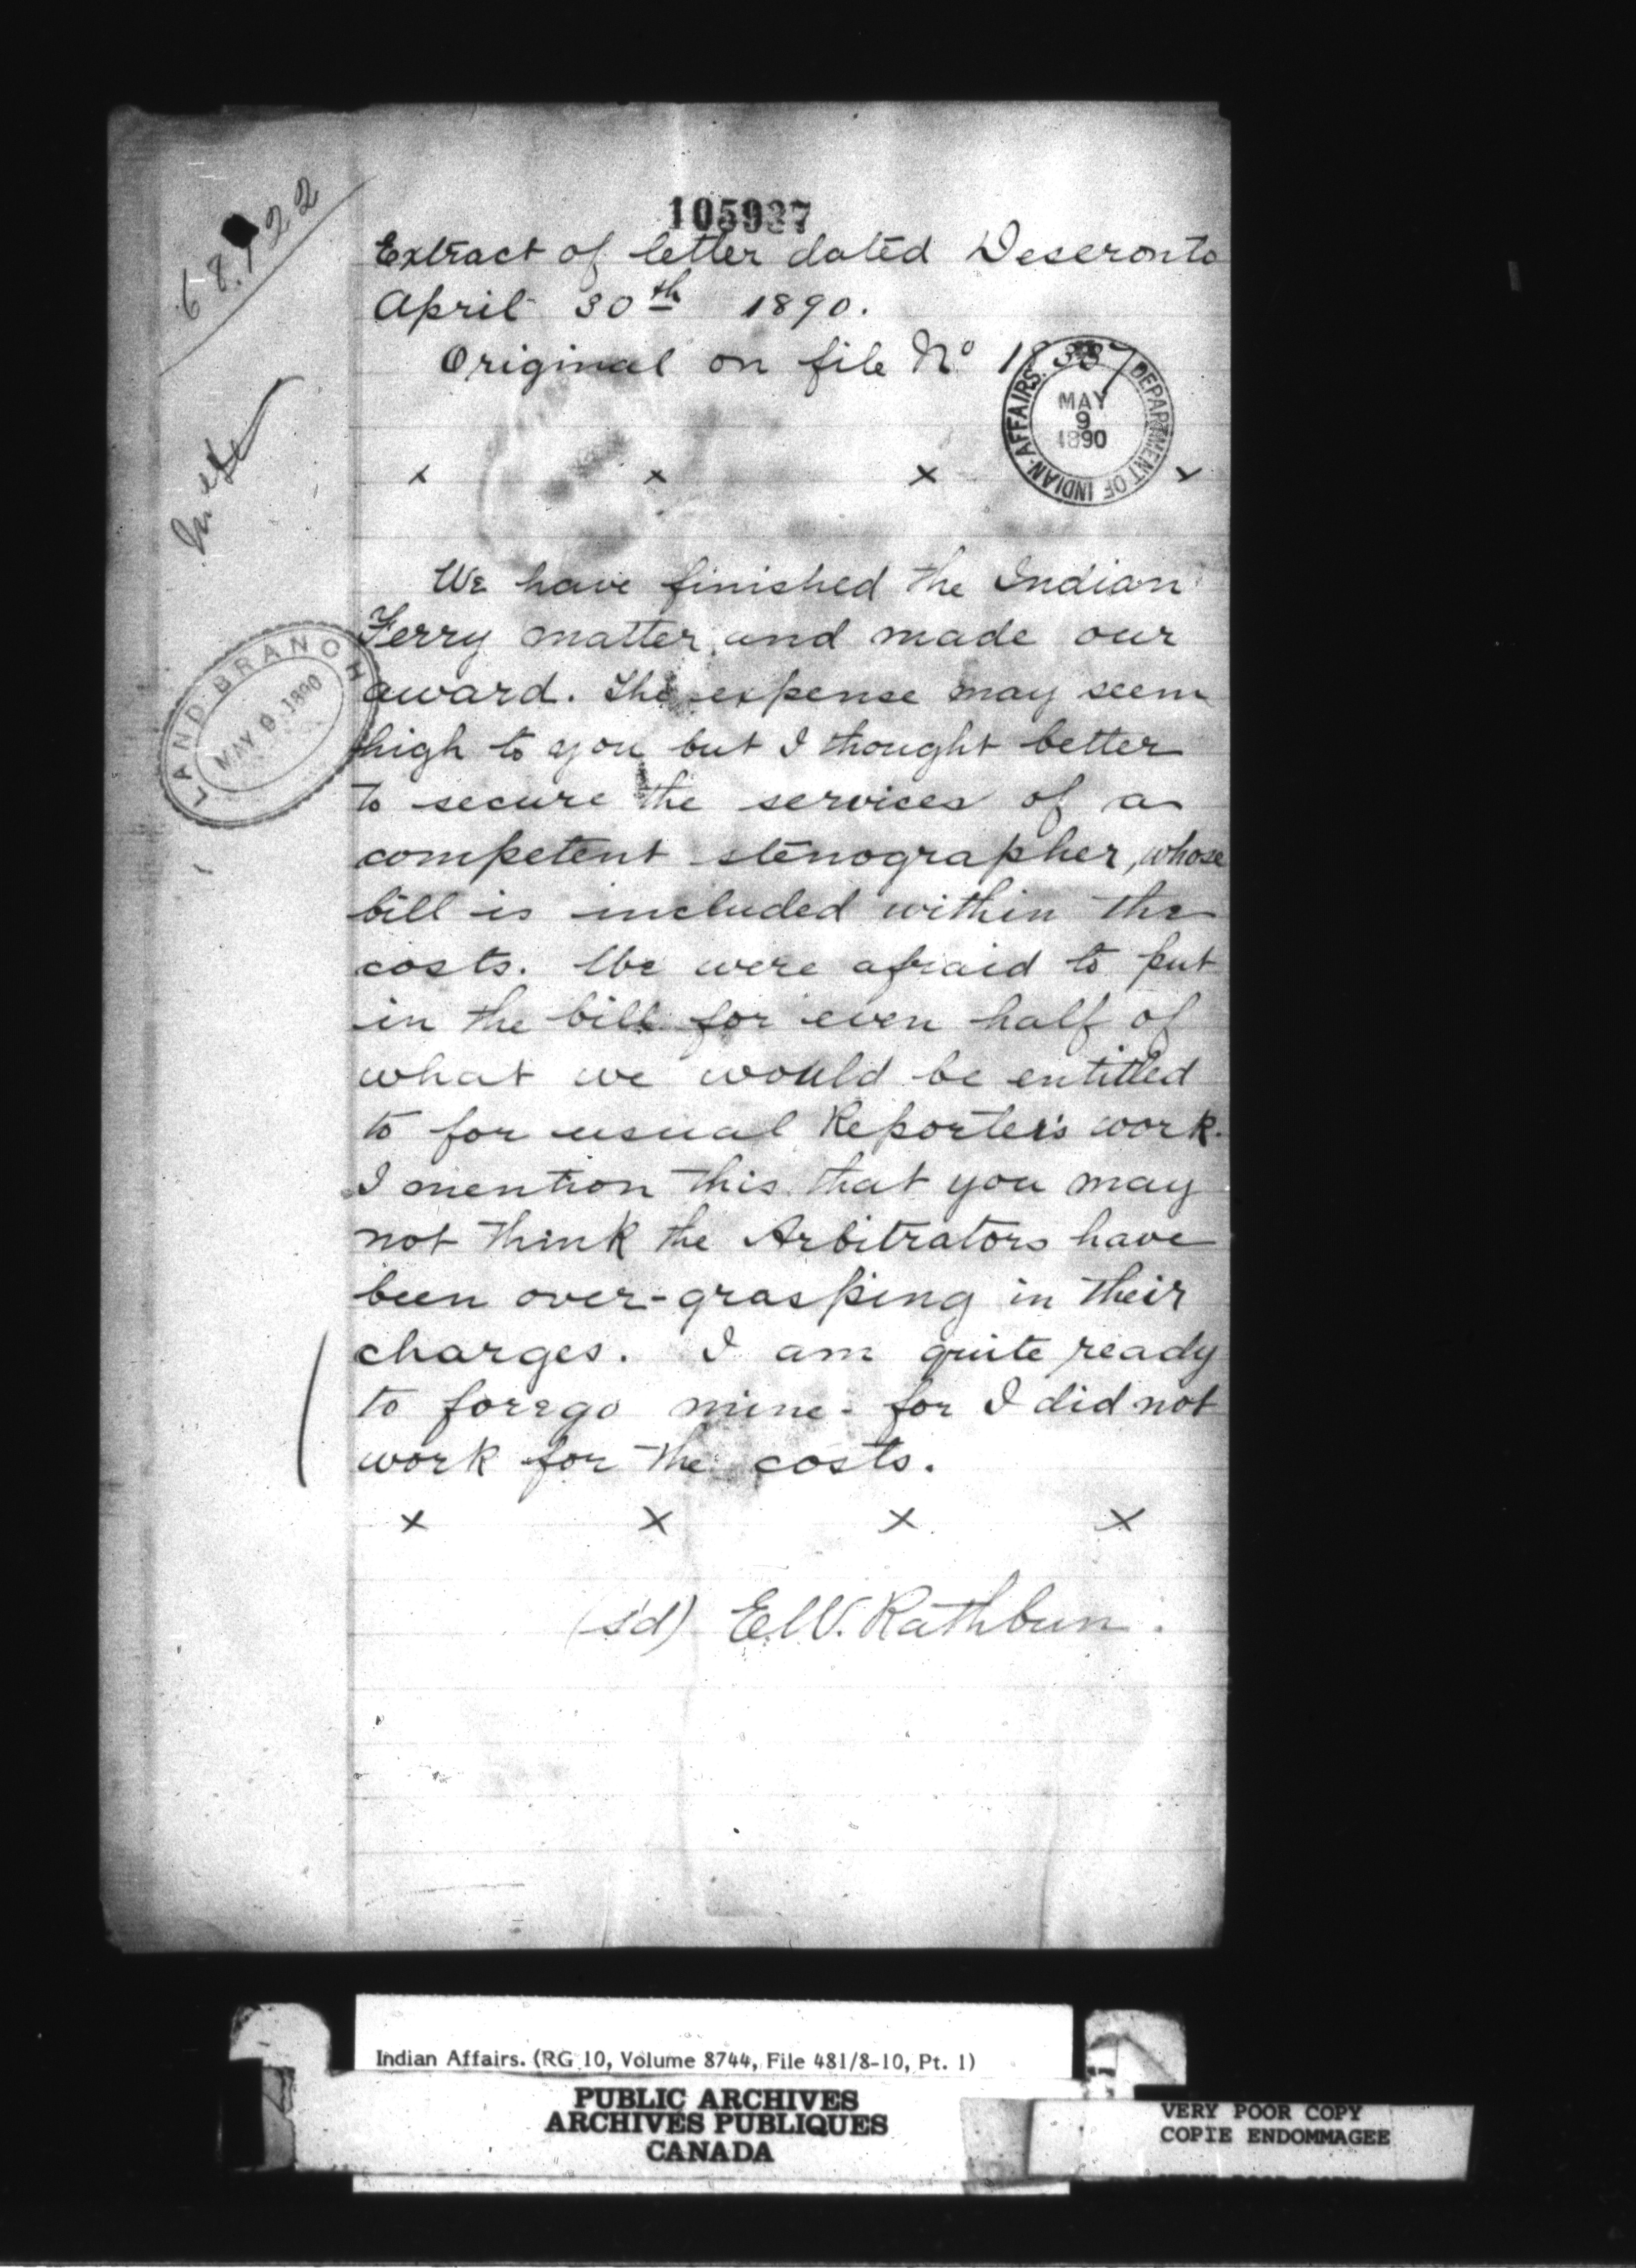 105937
Extract of letter dated Deseronto
April 30th 1890.
Original on file No
DEPARTMENT OF INDIAN AFFAIRS.
MAY
9
1890
x x x x
We have finished the Indian
Ferry matter and made our
award. The expense may seem
high to you but I thought better
to secure the services of a
competent stenographer, whose
bill is included within the
costs. We were afraid to put
in the bill for even half of
what we would be entitled
to for usual Reporter's work.
I mention this that you may
not think the Arbitrators have
been over-grasping in their
charges. I am quite ready
to forego mine - for I did not
work for the costs.
x x x x
(sd) E.W. Rathbun.
LAND BRANCH
MAY 9 1890
Indian Affairs. (RG 10, Volume 8744, File 481/8-10, Pt. 1)
PUBLIC ARCHIVES
ARCHIVES PUBLIQUES
CANADA
VERY POOR COPY
COPIE ENDOMMAGEE